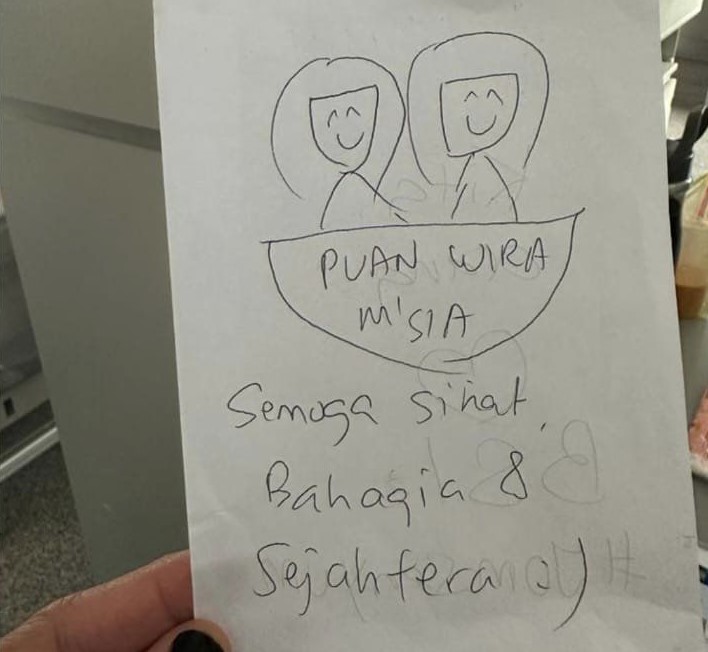 PUAN WIRA
M'SIA
Semoga sihat,
Bahagia &
Sejahtera :)